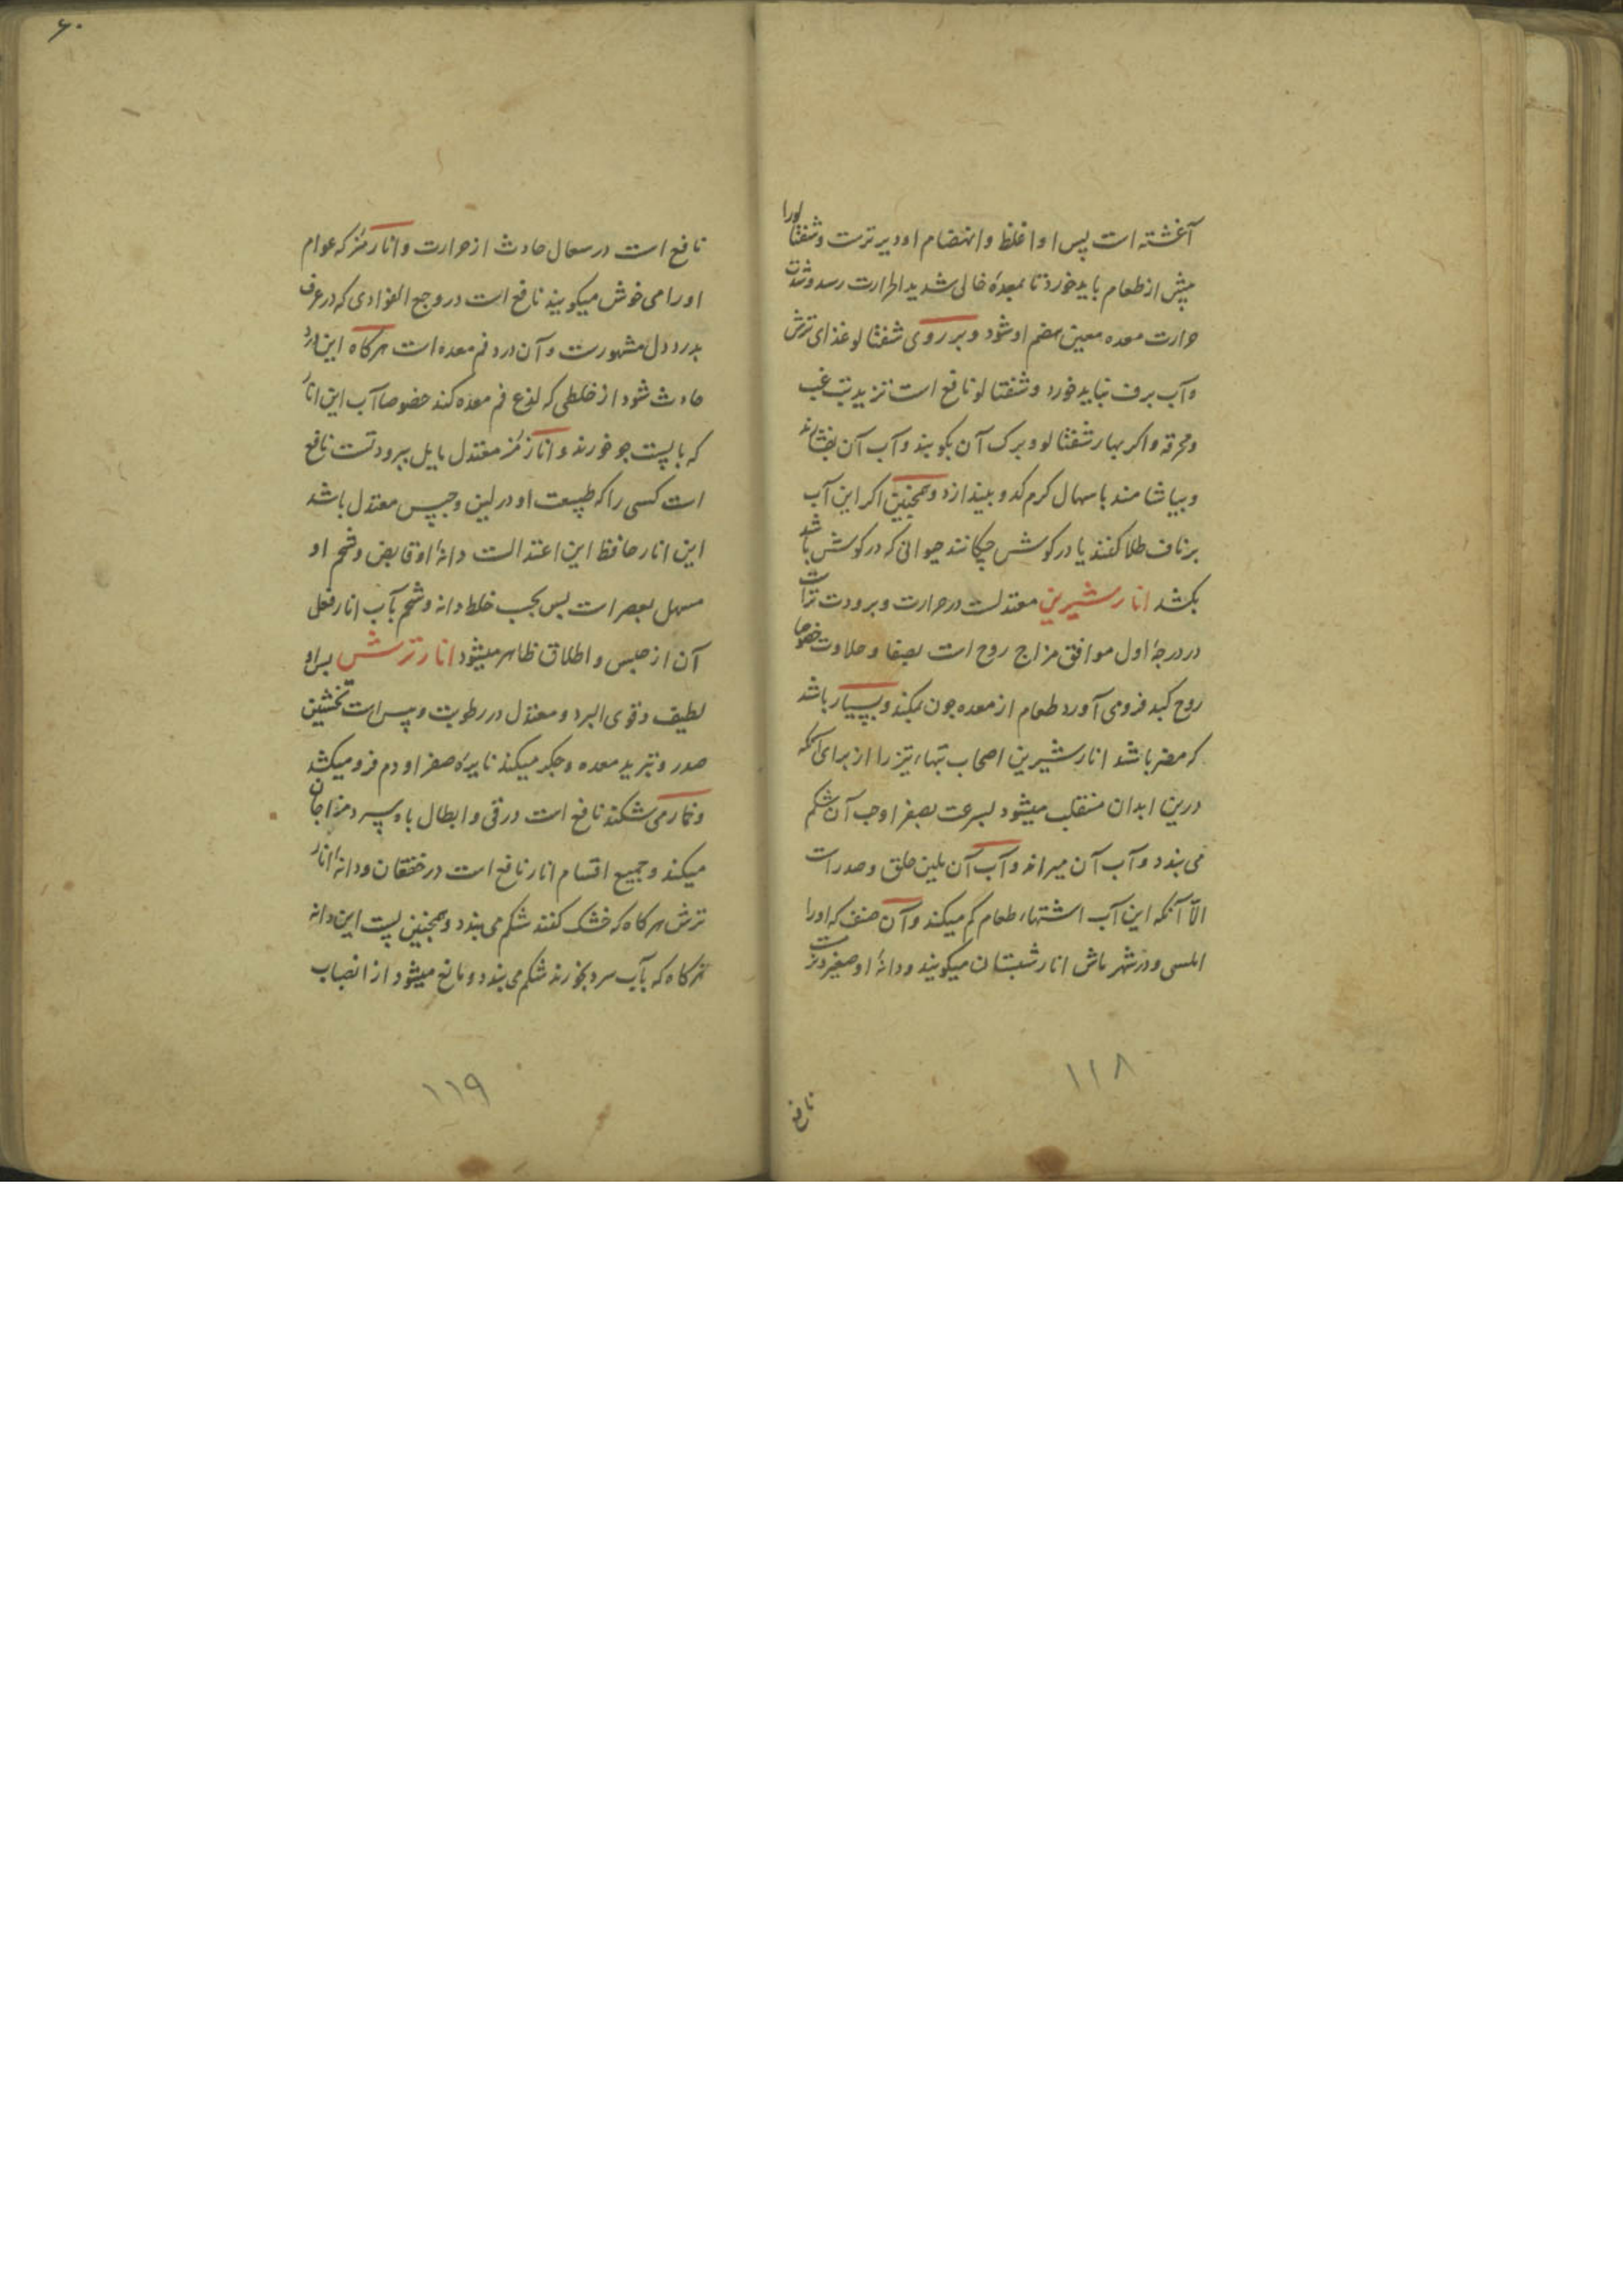 آغشته است پس او اغلظ و انهضام او دیرترست و شفتالو را
پیش از طعام باید خورد تا بمعدهٔ خالی شدید الحرارت رسد و شدت
حرارت معده معین هضم او شود و بر روی شفتالو غذای ترش
و آب برف نباید خورد و شفتالو نافع است تزید تب غب
و محرقه و اکر بهار شفتالو و برک آن بکوبند و آب آن بفشارند
و بیاشامند باسهال کرم کدو بیندازد و همچنین اکر این آب
بر ناف طلا کنند یا در کوش چکانند حیوانی که در کوش باشد
بکشد انار شیرین معتدلست در حرارت و برودت تر است
در درجهٔ اول موافق مزاج روح است بصفا و حلاوت خصوصا
روح کبد فرو می آورد طعام از معده چون بمکند و بسیار باشد
که مضر باشد انار شیرین اصحاب تبهاء تیز را از برای آنکه
درین ابدان منقلب میشود بسرعت بصفرا و حب آن شکم
می بندد و آب آن میراند و آب آن ملین حلق و صدر است
الّا آنکه این آب اشتهاء طعام کم میکند و آن صنف که او را
املسی و در شهر ماش انار شبستان میکویند و دانهٔ او صغیرترست
۱۱۸
نافع
۶۰
نافع است در سعال حادث از حرارت و انار مُز که عوام
او را می خوش میکویند نافع است در وجع الفوادی که در عرف
بدرد دل مشهورست و آن درد فم معده است هرکاه این درد
حادث شود از خلطی که لذع فم معده کند خصوصا آب این انار
که با پست جو خورند و انار مُز معتدل مایل ببرودتست نافع
است کسی را که طبیعت او در لین و حبس معتدل باشد
این انار حافظ این اعتدالست دانهٔ او قابض و شحم او
مسهل بعصر است پس بحسب خلط دانه و شحم بآب انار فعل
آن از حبس و اطلاق ظاهر میشود انار ترش بس او
لطیف و قوی البرد و معتدل در رطوبت و یبس است تخشین
صدر و تبرید معده و جکر میکند نایرهٔ صفرا و دم فرو میکشد
و خمار می شکند نافع است در قی و ابطال باه سرد مزاجان
میکند و جمیع اقسام انار نافع است در خفقان و دانهٔ انار
ترش هرکاه که خشک کنند شکم می بندد و همچنین پست این دانه
هرکاه که بآب سرد بخورند شکم می بندد و مانع میشود از انصباب
۱۱۹